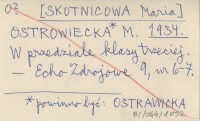 oz [SKOTNICOWA Maria]
OSTROWIECKA* M. 1934.
W przedziale klasy trzeciej.
– Echo Zdrojowe 9, nr 6-7.
* powinno być: OSTRAWICKA